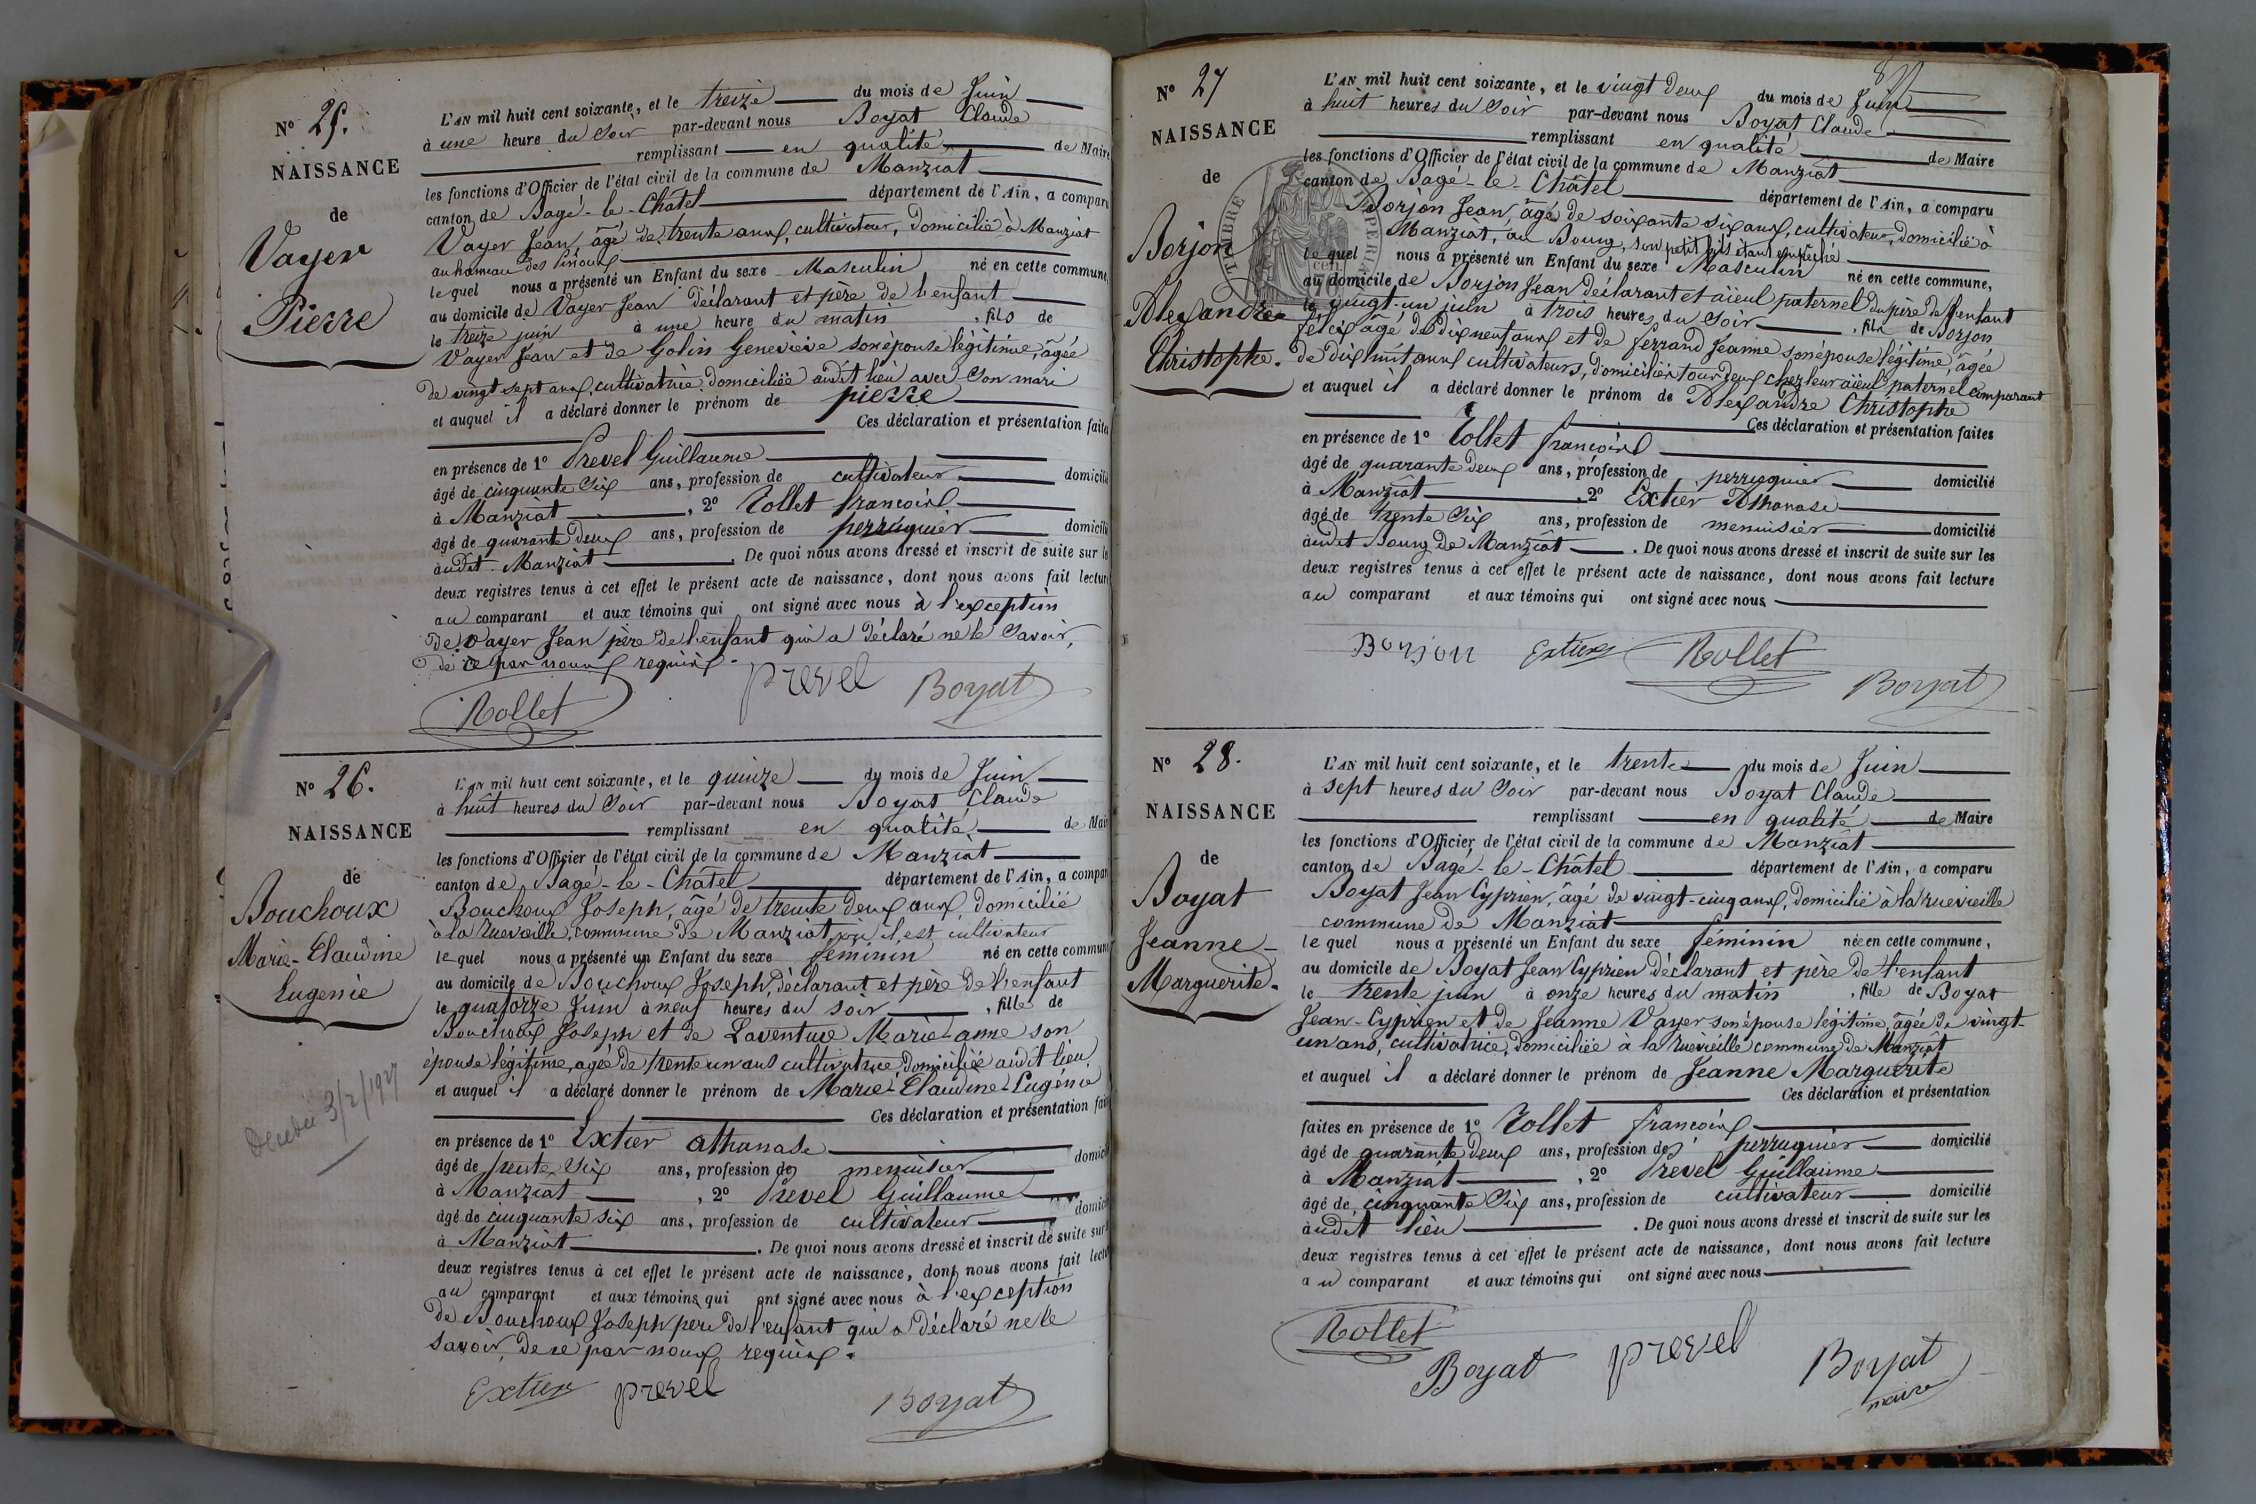 N° 25.
NAISSANCE
de
Vayer
Pierre
L'AN mil huit cent soixante, et le treize du mois de Juin
à une heure du Soir par-devant nous Boyat Claude
remplissant en qualité de Maire
les fonctions d'Officier de l'état civil de la commune de Manziat
canton de Bagé-le-Châtel département de l'Ain, a comparu
Vayer Jean, âgé de trente ans, cultivateur, domicilié à Manziat
au hameau des Pinoux
lequel nous a présenté un Enfant du sexe Masculin né en cette commune,
au domicile de Vayer Jean déclarant et père de l'enfant
le treize juin à une heure du matin, fils de
Vayer Jean et de Golin Geneviève son épouse légitime, âgée
de vingt sept ans, cultivatrice, domiciliée audit lieu avec son mari
et auquel il a déclaré donner le prénom de pierre
Ces déclaration et présentation faites
en présence de 1° Prevel Guillaume
âgé de cinquante six ans, profession de cultivateur domicilié
à Manziat, 2° Rollet françois
âgé de quarante deux ans, profession de perruquier domicilié
audit Manziat. De quoi nous avons dressé et inscrit de suite sur les
deux registres tenus à cet effet le présent acte de naissance, dont nous avons fait lecture
au comparant et aux témoins qui ont signé avec nous à l'exception
de Vayer Jean père de l'enfant qui a déclaré ne le savoir,
de ce par nous requis.
Rollet prevel Boyat
N° 26.
NAISSANCE
de
Bouchoux
Marie-Claudine
Eugénie
Décédée 3/2/1927
L'AN mil huit cent soixante, et le quinze du mois de Juin
à huit heures du Soir par-devant nous Boyat Claude
remplissant en qualité de Maire
les fonctions d'Officier de l'état civil de la commune de Manziat
canton de Bagé-le-Châtel département de l'Ain, a comparu
Bouchoux Joseph, âgé de trente deux ans, domicilié
à la Ruevieille, commune de Manziat, où il est cultivateur
lequel nous a présenté un Enfant du sexe féminin né en cette commune
au domicile de Bouchoux Joseph, déclarant et père de l'enfant
le quatorze Juin à neuf heures du soir, fille de
Bouchoux Joseph et de Laventure Marie-anne son
épouse légitime, agée de trente un ans cultivatrice, domiciliée audit lieu
et auquel il a déclaré donner le prénom de Marie-Claudine-Eugénie
Ces déclaration et présentation faites
en présence de 1° Extier athanase
âgé de trente six ans, profession de menuisier domicilié
à Manziat, 2° Prevel Guillaume
âgé de cinquante six ans, profession de cultivateur domicilié
à Manziat. De quoi nous avons dressé et inscrit de suite sur
deux registres tenus à cet effet le présent acte de naissance, dont nous avons fait lecture
au comparant et aux témoins qui ont signé avec nous à l'exception
de Bouchoux Joseph pere de l'enfant qui a déclaré ne le
savoir, de ce par nous requis.
Extier prevel Boyat
N° 27
NAISSANCE
de
Borjon
Alexandre
Christophe.
TIMBRE IMPERIAL
L'AN mil huit cent soixante, et le vingt deux du mois de Juin
à huit heures du Soir par-devant nous Boyat Claude
remplissant en qualité de Maire
les fonctions d'Officier de l'état civil de la commune de Manziat
canton de Bagé-le-Châtel département de l'Ain, a comparu
Borjon Jean, âgé de soixante six ans, cultivateur, domicilié à
Manziat, au Bourg, son petit fils étant empêché
lequel nous a présenté un Enfant du sexe Masculin né en cette commune,
au domicile de Borjon Jean déclarant et aïeul paternel du père de l'enfant
le vingt-un juin à trois heures du Soir, fils de Borjon
félix âgé de dix neuf ans et de ferrand Jeanne son épouse légitime, âgée
de dix huit ans cultivateurs, domiciliés tous deux chez leur aïeul paternel comparant
et auquel il a déclaré donner le prénom de Alexandre Christophe
Ces déclaration et présentation faites
en présence de 1° Rollet françois
âgé de quarante deux ans, profession de perruquier domicilié
à Manziat, 2° Extier Athanase
âgé de trente six ans, profession de menuisier domicilié
audit Bourg de Manziat. De quoi nous avons dressé et inscrit de suite sur les
deux registres tenus à cet effet le présent acte de naissance, dont nous avons fait lecture
au comparant et aux témoins qui ont signé avec nous
Borjon Extier Rollet
Boyat
N° 28.
NAISSANCE
de
Boyat
Jeanne-
Marguerite.
L'AN mil huit cent soixante, et le trente du mois de Juin
à sept heures du Soir par-devant nous Boyat Claude
remplissant en qualité de Maire
les fonctions d'Officier de l'état civil de la commune de Manziat
canton de Bagé-le-Châtel département de l'Ain, a comparu
Boyat Jean Cyprien, âgé de vingt-cinq ans, domicilié à la ruevieille
commune de Manziat
lequel nous a présenté un Enfant du sexe féminin née en cette commune,
au domicile de Boyat Jean Cyprien déclarant et père de l'enfant
le trente juin à onze heures du matin, fille de Boyat
Jean-Cyprien et de Jeanne Vayer son épouse légitime, âgée de vingt-
un ans, cultivatrice, domiciliée à la Ruevieille commune de Manziat
et auquel il a déclaré donner le prénom de Jeanne Marguerite
Ces déclaration et présentation
faites en présence de 1° Rollet françois
âgé de quarante deux ans, profession de perruquier domicilié
à Manziat, 2° Prevel Guillaume
âgé de cinquante six ans, profession de cultivateur domicilié
audit lieu. De quoi nous avons dressé et inscrit de suite sur les
deux registres tenus à cet effet le présent acte de naissance, dont nous avons fait lecture
au comparant et aux témoins qui ont signé avec nous
Rollet Boyat prevel Boyat
maire